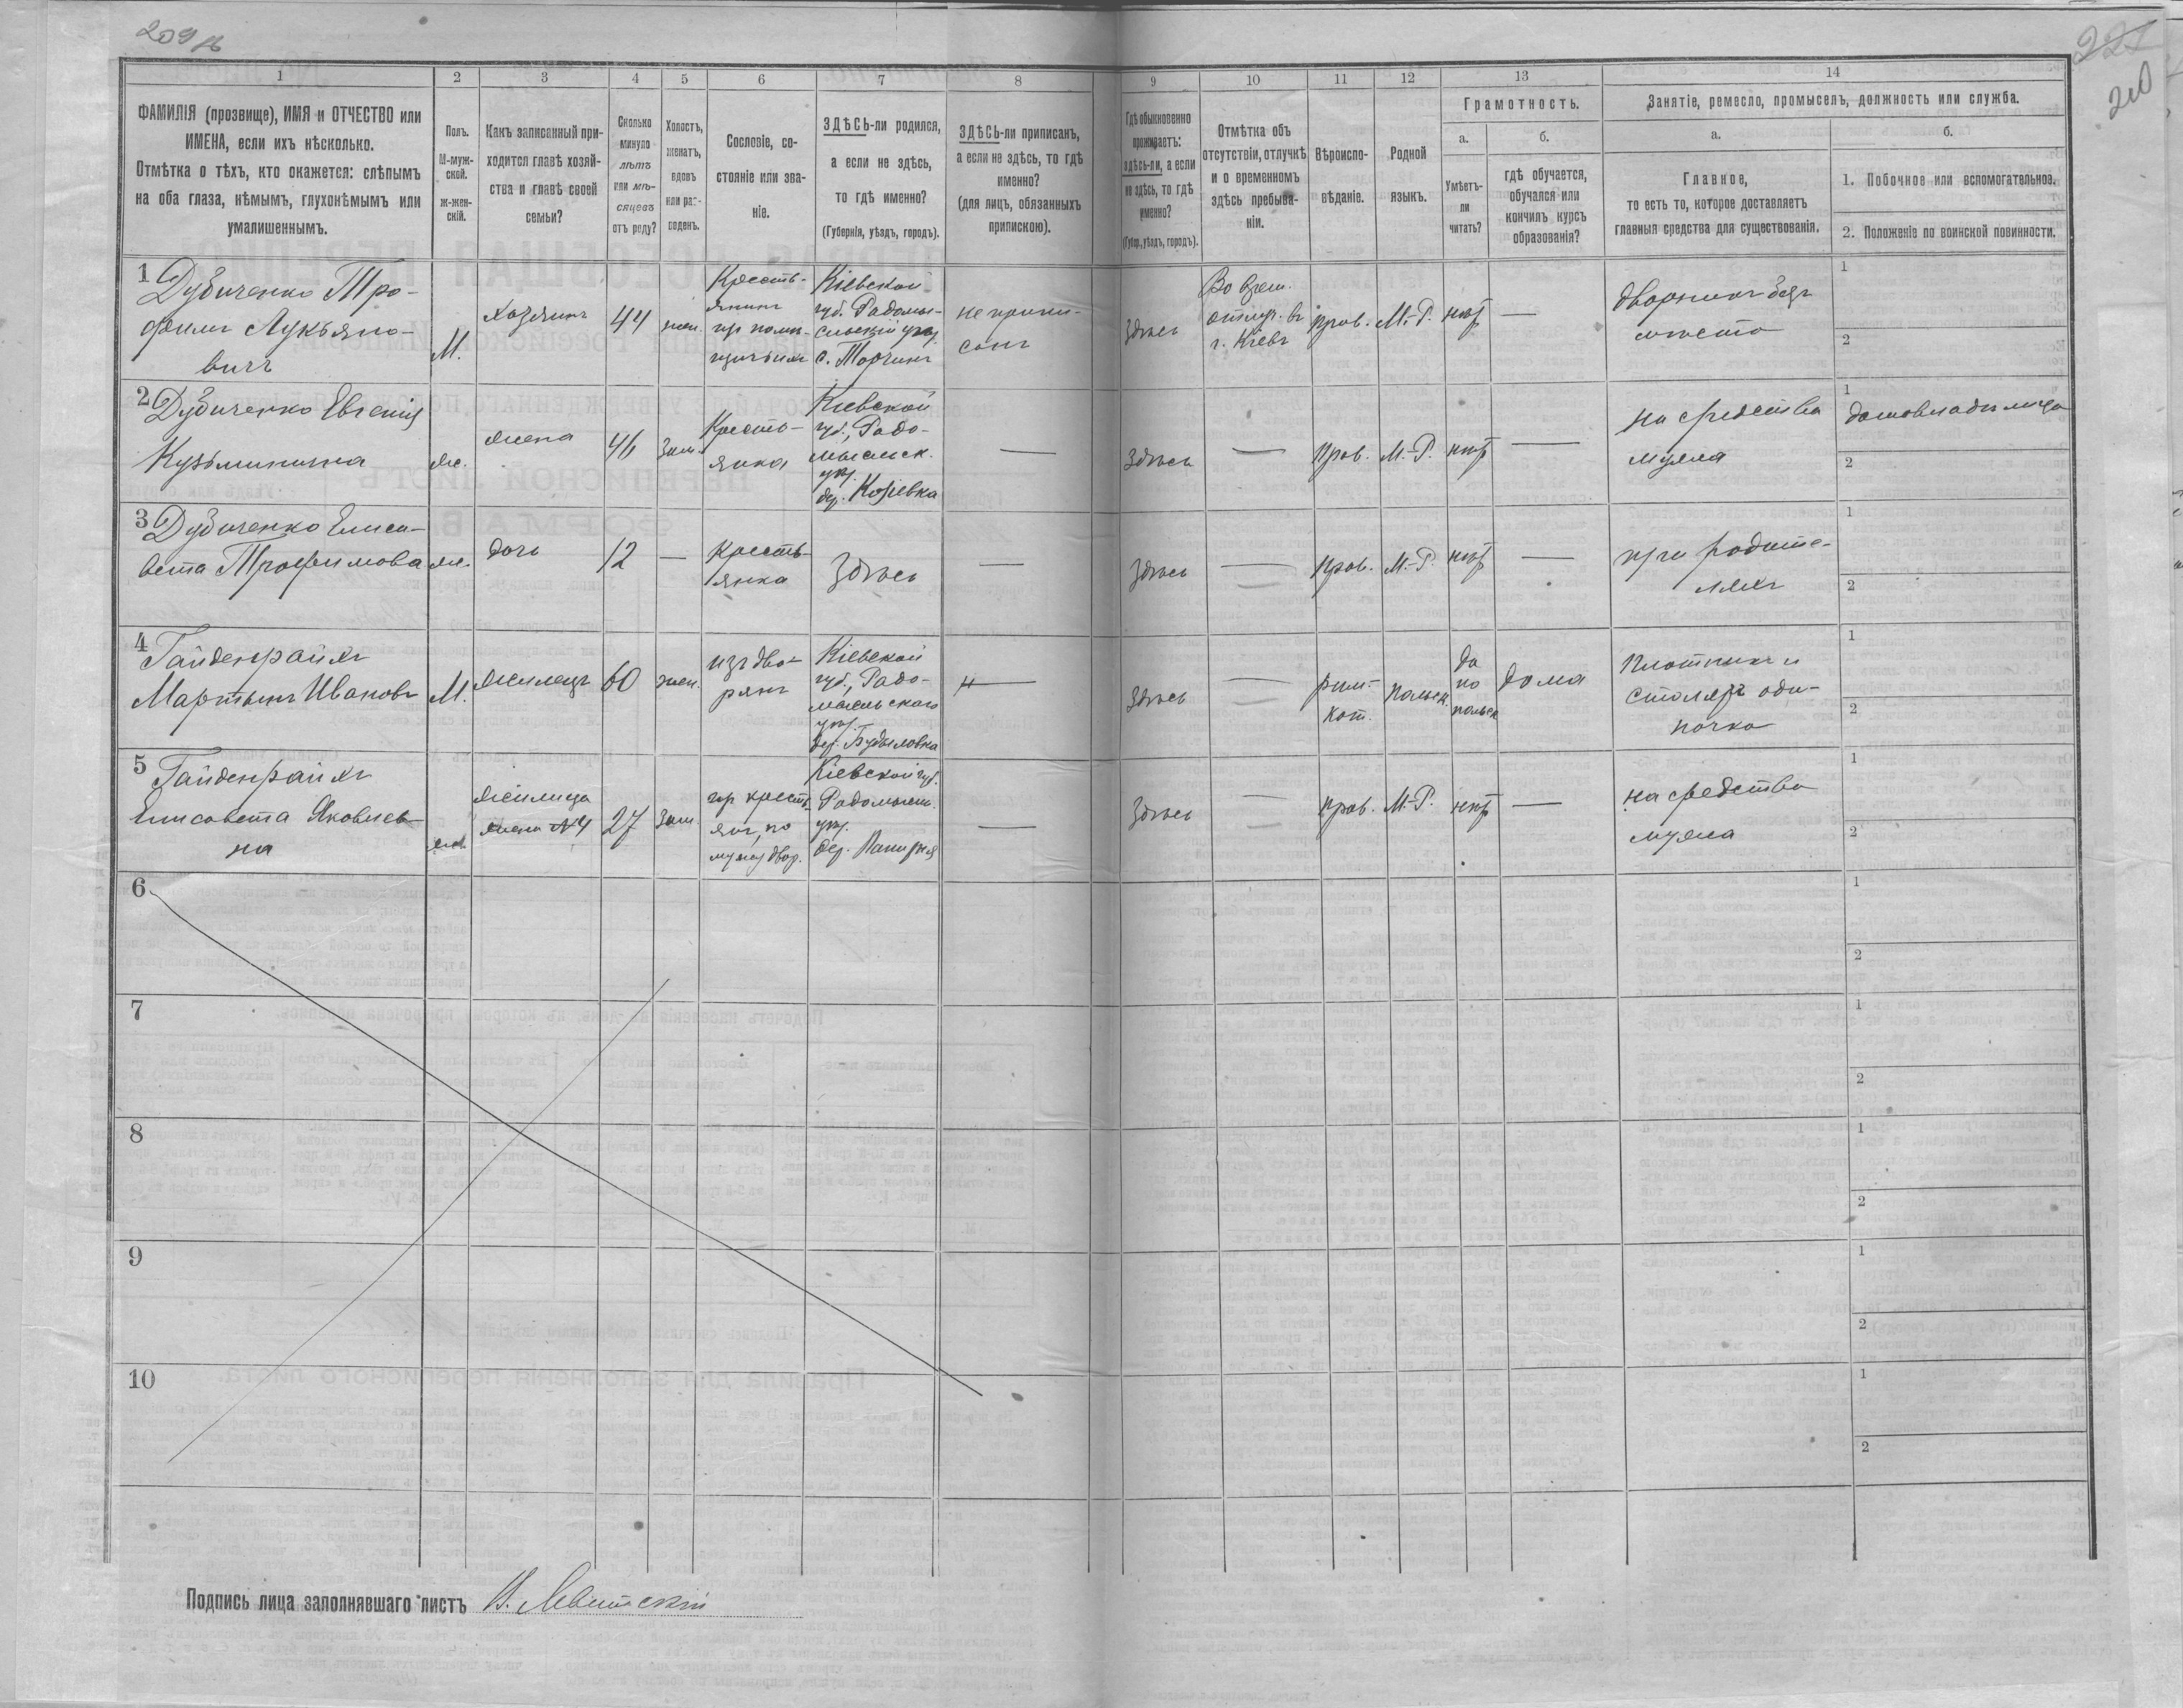 209 об
221
210
1 2 3 4 5 6 7 8 9 10 11 12 13 14
ФАМИЛІЯ (прозвище), ИМЯ и ОТЧЕСТВО или
ИМЕНА, если ихъ нѣсколько.
Отмѣтка о тѣхъ, кто окажется: слѣпымъ
на оба глаза, нѣмымъ, глухонѣмымъ или
умалишеннымъ.
Полъ.
М-муж-
ской.
Ж-жен-
скій.
Какъ записанный при-
ходится главѣ хозяй-
ства и главѣ своей
семьи?
Сколько
минуло
лѣтъ
или мѣ-
сяцевъ
отъ роду?
Холостъ,
женатъ,
вдовъ
или раз-
веденъ.
Сословіе, со-
стояніе или зва-
ніе.
ЗДѢСЬ-ли родился,
а если не здѣсь,
то гдѣ именно?
(Губернія, уѣздъ, городъ).
ЗДѢСЬ-ли приписанъ,
а если не здѣсь, то гдѣ
именно?
(для лицъ, обязанныхъ
припискою).
Гдѣ обыкновенно
проживаетъ:
здѣсь-ли, а если
не здѣсь, то гдѣ
именно?
(Губер., уѣздъ, городъ).
Отмѣтка объ
отсутствіи, отлучкѣ
и о временномъ
здѣсь пребыва-
ніи.
Вѣроиспо-
вѣданіе.
Родной
языкъ.
Грамотность.
а.
Умѣетъ-
ли
читать?
б.
гдѣ обучается,
обучался или
кончилъ курсъ
образованія?
Занятіе, ремесло, промыселъ, должность или служба.
а.
Главное,
то есть то, которое доставляетъ
главныя средства для существованія.
б.
1. Побочное или вспомогательное.
2. Положеніе по воинской повинности.
1
Дубиченко Тро-
фимъ Лукьяно-
вичъ
М.
хозяинъ
44
жен.
Кресть-
янинъ
Кіевской
губ. Радомы-
сльскій уѣзд.
с. Торчинъ
не припи-
санъ
здѣсь
Во врем.
отлуч. въ
г. Кіевъ
прав.
М.-Р.
нѣт
—
дворникъ безъ
мѣста
1
2
2
Дубиченко Евгенія
Кузьминична
ж.
жена
46
зам.
Кресть-
янка
Кіевской
губ., Радо-
мысльск.
уѣз.
дер. Козіевка
—
здѣсь
—
прав.
М.-Р.
нѣт
—
на средства
мужа
1
домовладѣлица
2
3
Дубиченко Елиса-
вета Трофимова
ж.
дочь
12
—
кресть-
янка
Здѣсь
—
здѣсь
—
прав.
М.-Р.
нѣт
—
при родите-
ляхъ
1
2
4
Гайденрайхъ
Мартынъ Ивановъ
М.
жилецъ
60
жен.
изъ дво-
рянъ
Кіевской
губ., Радо-
мысльскаго
уѣз.
дер. Будыловка
—
здѣсь
—
рим.-
кат.
польск.
да
по
польск
дома
Плотникъ и
столяръ оди-
ночка
1
2
5
Гайденрайхъ
Елисавета Яковлев-
на
ж.
жилица
жена №4
27
зам.
кресть-
ян., по
мужу двор.
Кіевской губ.
Радомысл.
уѣз.
дер. Папирня
—
здѣсь
—
прав.
М.-Р.
нѣт
—
на средства
мужа
1
2
6
1
2
7
1
2
8
1
2
9
1
2
10
1
2
Подпись лица заполнявшаго листъ В. Левитскій